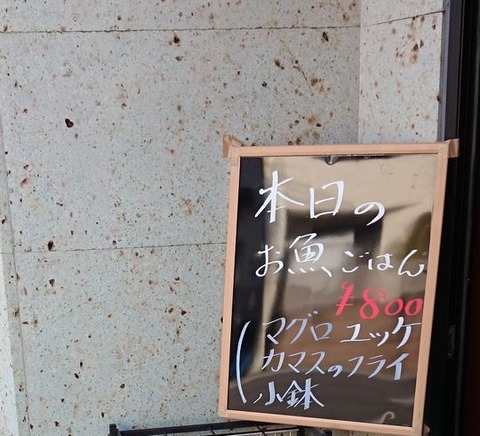 本日の
お魚、ごはん
¥800
(マグロユッケ
カマスのフライ
小鉢